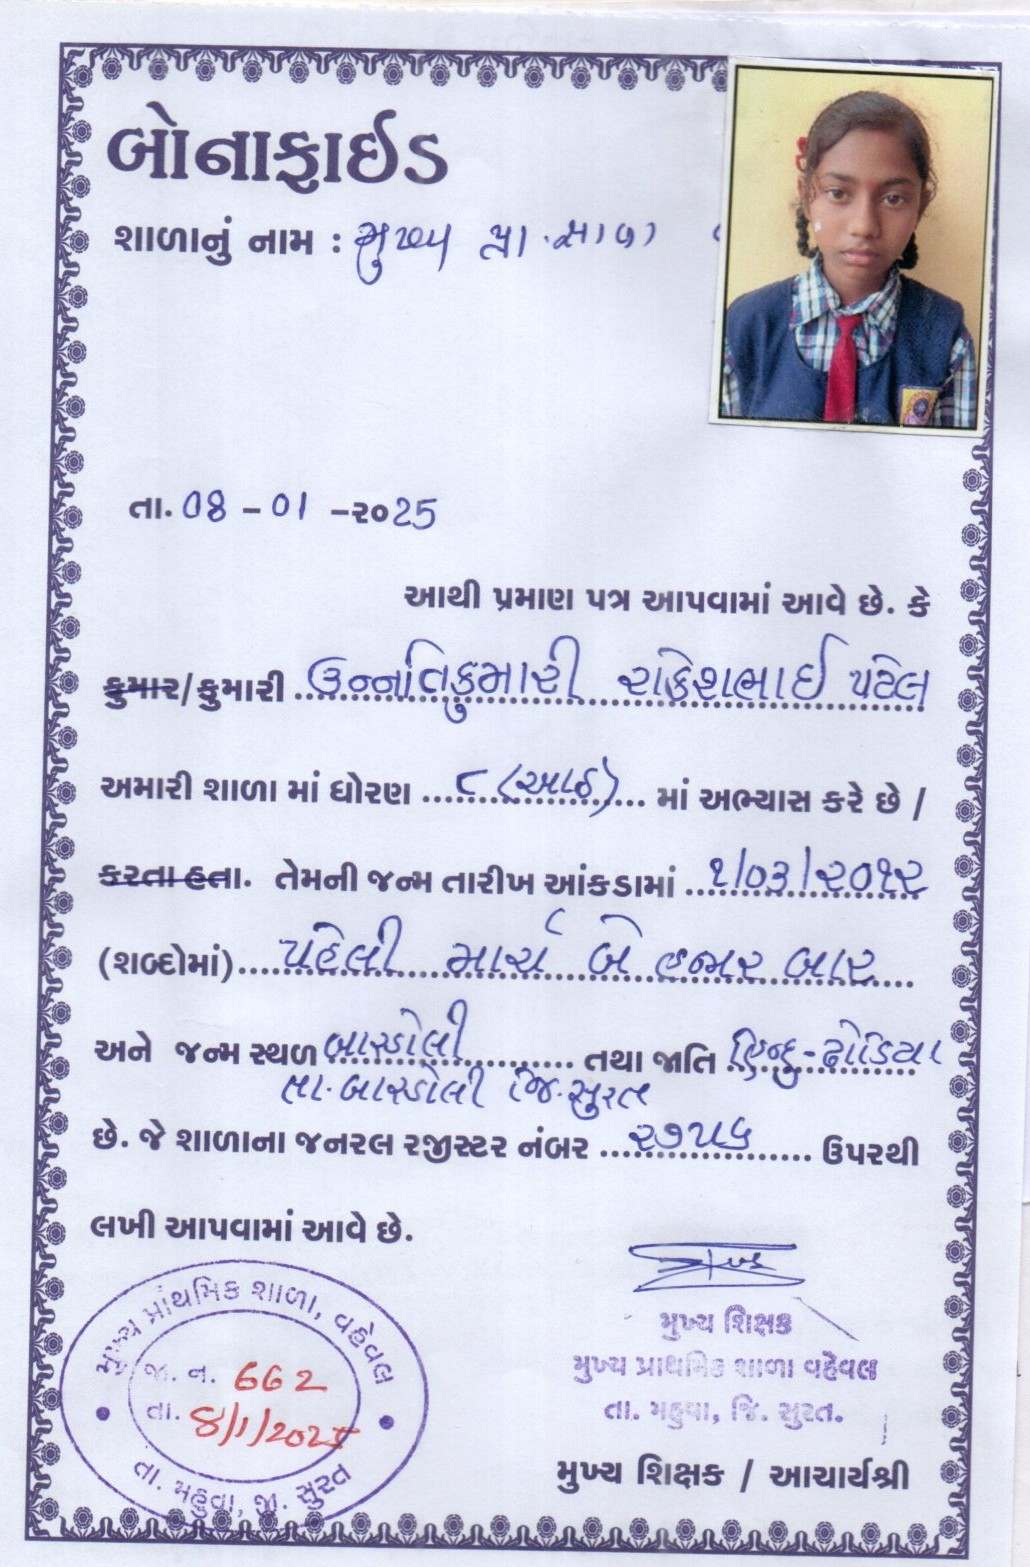 બોનાફાઈડ
શાળાનું નામ : મુખ્ય પ્રા. શાળા
તા. 08 - 01 - ૨૦25
આથી પ્રમાણ પત્ર આપવામાં આવે છે. કે
કુમાર/કુમારી ઉન્નતિકુમારી રાકેશભાઈ પટેલ
અમારી શાળા માં ધોરણ ૮ (આઠ) માં અભ્યાસ કરે છે /
કરતા હતા. તેમની જન્મ તારીખ આંકડામાં ૧/૦૩/૨૦૧૨
(શબ્દોમાં) પહેલી માર્ચ બે હજાર બાર
અને જન્મ સ્થળ બારડોલી તથા જાતિ હિન્દુ-ઢોડિયા
તા. બારડોલી જિ. સુરત
છે. જે શાળાના જનરલ રજીસ્ટર નંબર ૨૭૫૬ ઉપરથી
લખી આપવામાં આવે છે.
મુખ્ય શિક્ષક
મુખ્ય પ્રાથમિક શાળા વહેવલ
તા. મહુવા, જિ. સુરત.
મુખ્ય શિક્ષક / આચાર્યશ્રી
મુખ્ય પ્રાંથમિક શાળા, વહેવલ
જા. ન. 662
તા. 8/1/2025
તા. મહુવા, જી. સુરત